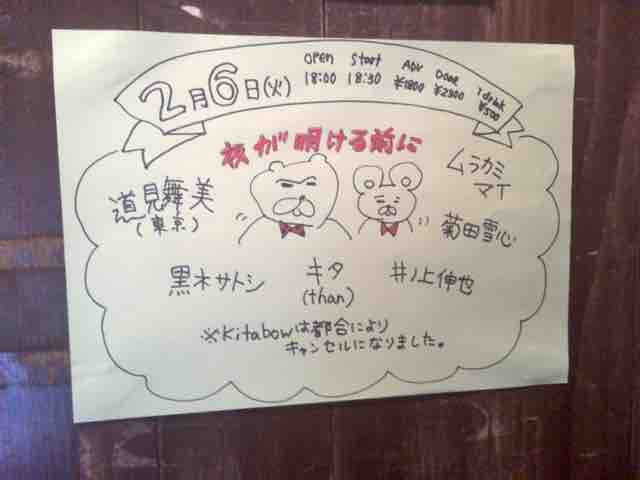 2月6日(火)
OPEN 18:00
Start 18:30
ADV ¥1800
DOOR ¥2300
1drink ¥500
夜が明ける前に
道見舞美
(東京)
ムラカミ
マイ
菊田雪心
黒木サトシ
キタ
(than)
井ノ上伸也
※Kitabowは都合により
キャンセルになりました。